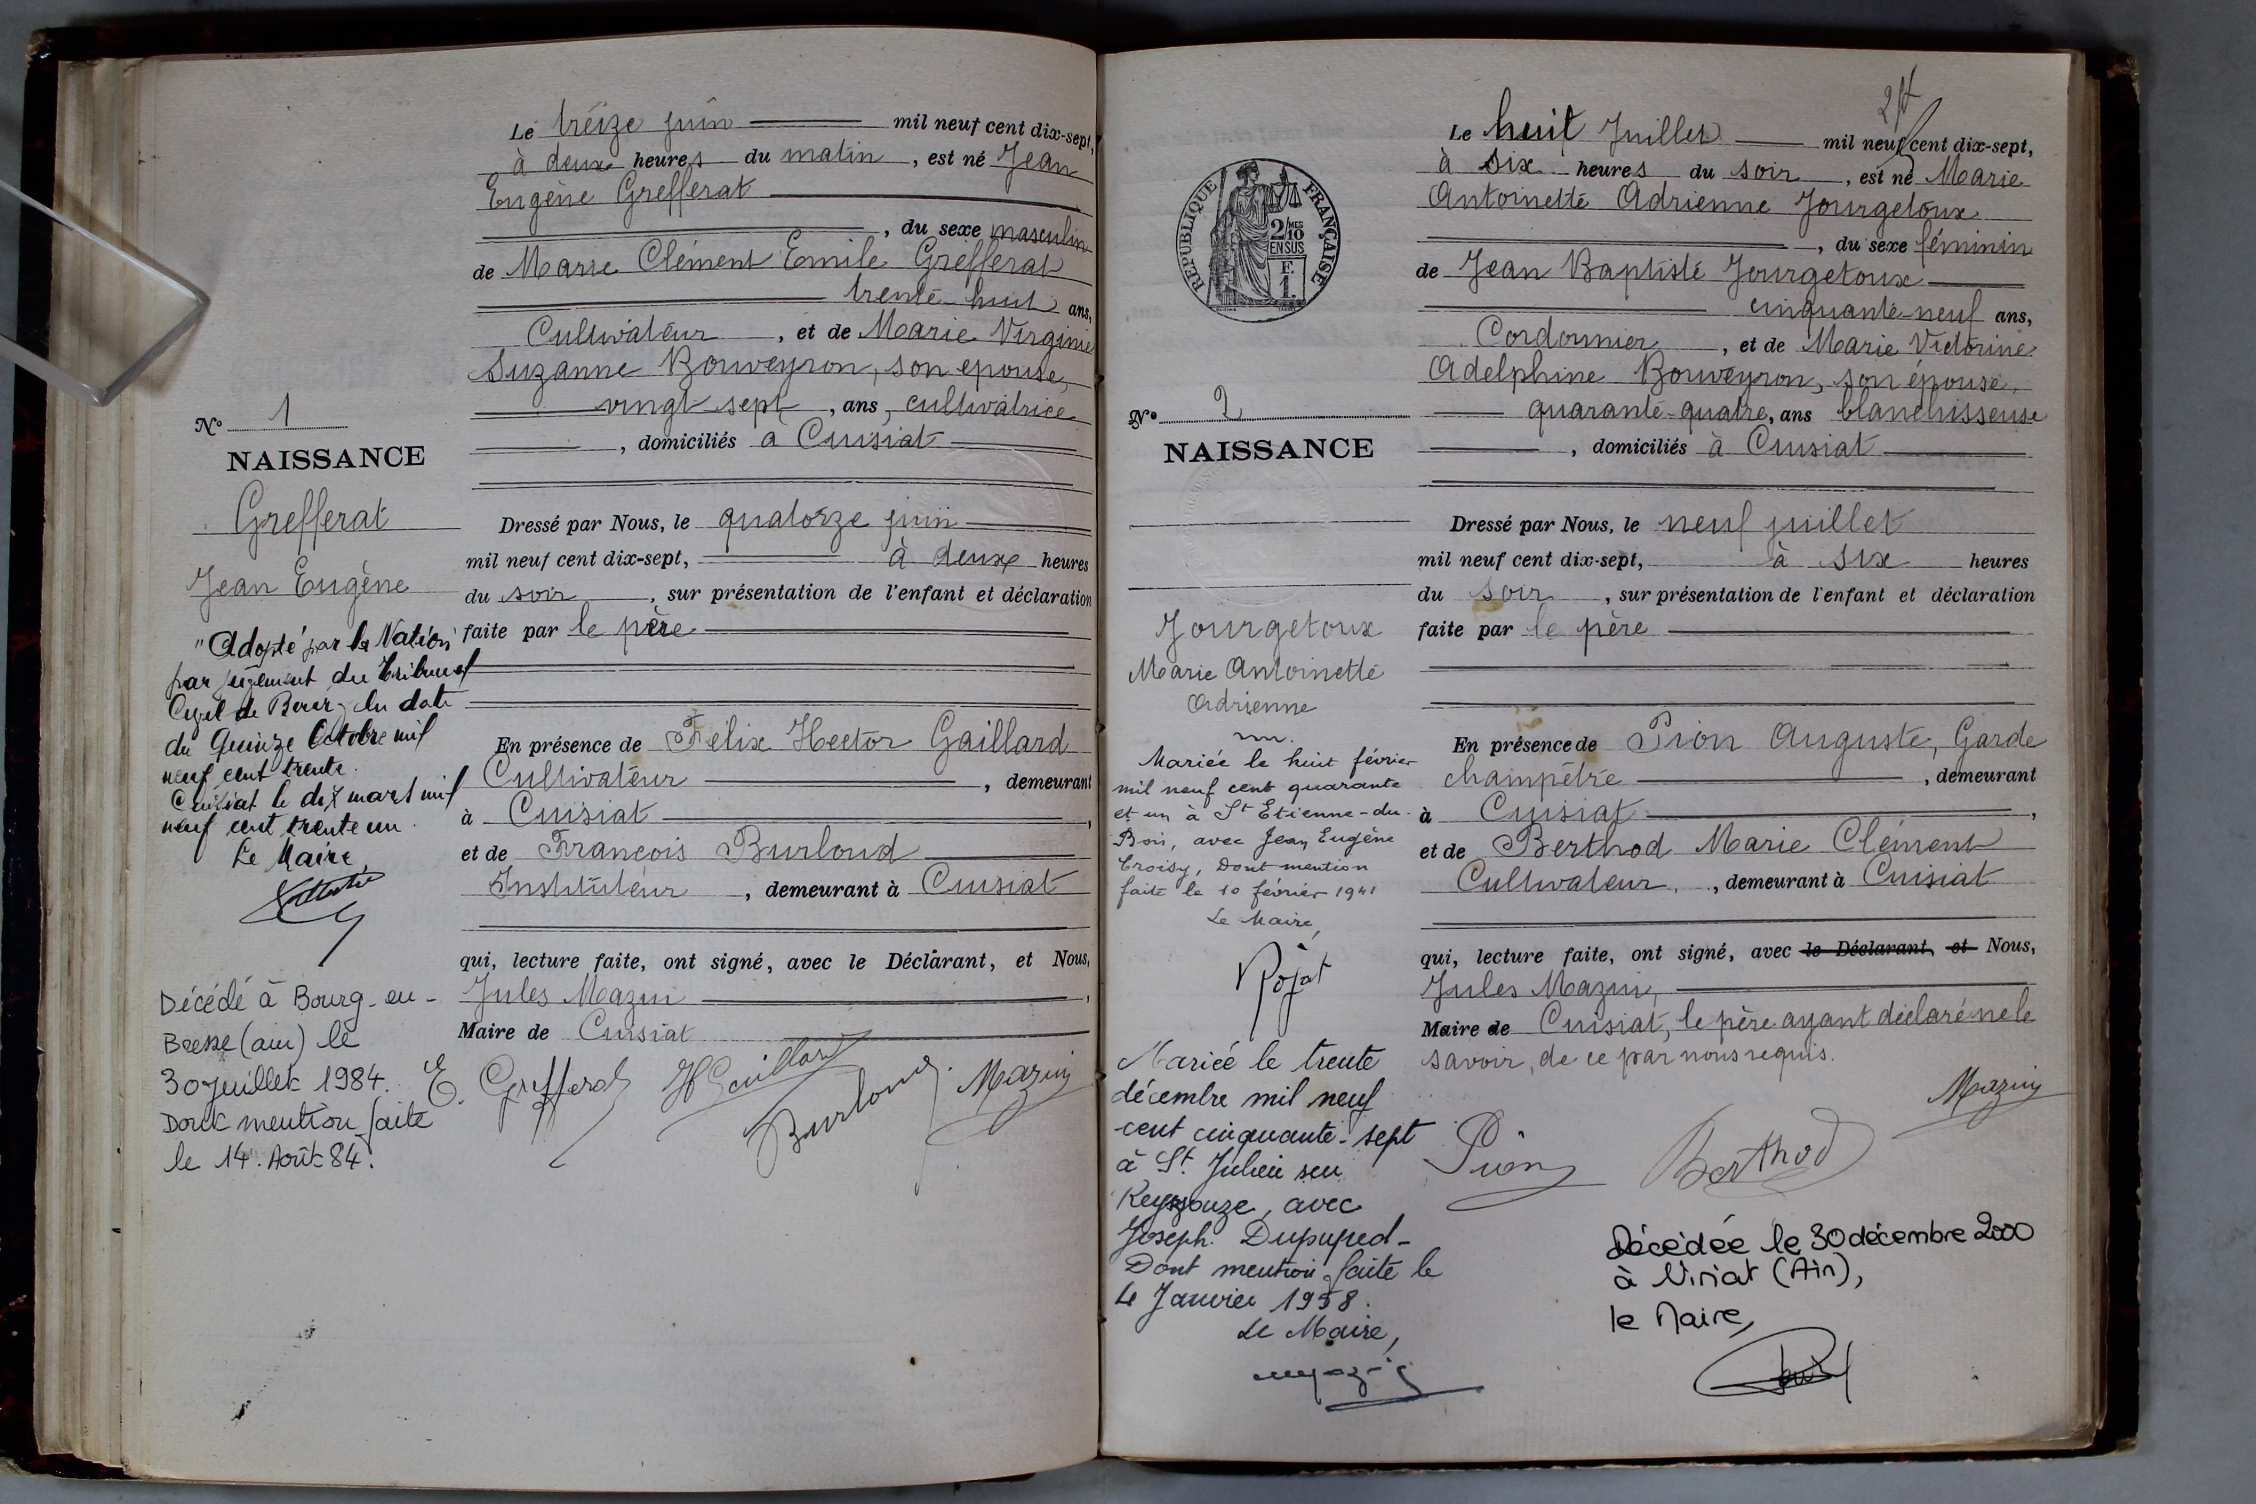 Le treize juin mil neuf cent dix-sept,
à deux heures du matin, est né Jean
Eugène Grefferat
, du sexe masculin
de Marie Clément Emile Grefferat
trente-huit ans,
Cultivateur, et de Marie Virginie
Suzanne Bouveyron, son épouse,
vingt sept, ans, cultivatrice
, domiciliés à Cuisiat
N° 1
NAISSANCE
Grefferat
Jean Eugène
"Adopté par la Nation"
par jugement du Tribunal
Civil de Bourg en date
du Quinze Octobre mil
neuf cent trente.
Cuisiat le dix mars mil
neuf cent trente un.
Le Maire,
Décédé à Bourg-en-
Bresse (ain) le
30 Juillet 1984.
Dont mention faite
le 14. Août 84.
Dressé par Nous, le quatorze juin
mil neuf cent dix-sept, à deux heures
du soir, sur présentation de l'enfant et déclaration
faite par le père
En présence de Félix Hector Gaillard
Cultivateur, demeurant
à Cuisiat,
et de François Burloud
Instituteur, demeurant à Cuisiat
qui, lecture faite, ont signé, avec le Déclarant, et Nous,
Jules Mazuy,
Maire de Cuisiat
E. Grefferat HGaillard Burloud Mazuy
REPUBLIQUE FRANÇAISE
2/10 MES
EN SUS
F.
1.
Le huit Juillet mil neuf cent dix-sept,
à six heures du soir, est né Marie
Antoinette Adrienne Jourgetoux
, du sexe féminin
de Jean Baptiste Jourgetoux
cinquante-neuf ans,
Cordonnier, et de Marie Victorine
Adelphine Bouveyron, son épouse,
quarante-quatre, ans blanchisseuse
, domiciliés à Cuisiat
N° 2
NAISSANCE
Jourgetoux
Marie Antoinette
Adrienne
Mariée le huit février
mil neuf cent quarante
et un à St Etienne-du-
Bois, avec Jean Eugène
Croisy, Dont mention
faite le 10 février 1941
Le Maire,
Rojat
Mariée le trente
décembre mil neuf
cent cinquante-sept
à St. Julien sur
Reyssouze, avec
Joseph Dupuped-
Dont mention faite le
4 Janvier 1958.
Le Maire,
Dressé par Nous, le neuf juillet
mil neuf cent dix-sept, à six heures
du soir, sur présentation de l'enfant et déclaration
faite par le père
En présence de Pion Auguste, Garde
champêtre, demeurant
à Cuisiat,
et de Berthod Marie Clément
Cultivateur, demeurant à Cuisiat
qui, lecture faite, ont signé, avec le Déclarant, et Nous,
Jules Mazuy,
Maire de Cuisiat, le père ayant déclaré ne le
savoir, de ce par nous requis.
Mazuy
Pion Berthod
Décédée le 30 décembre 2000
à Viriat (Ain),
le Maire,